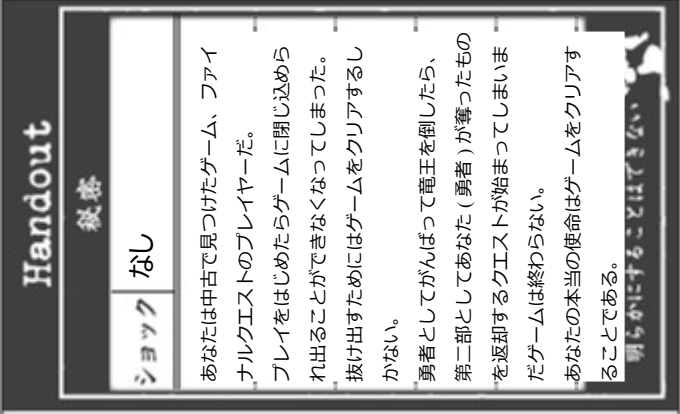 Handout
秘密
ショック なし
あなたは中古で見つけたゲーム、ファイ
ナルクエストのプレイヤーだ。
プレイをはじめたらゲームに閉じ込めら
れ出ることができなくなってしまった。
抜け出すためにはゲームをクリアするし
かない。
勇者としてがんばって竜王を倒したら、
第二部としてあなた(勇者)が奪ったもの
を返却するクエストが始まってしまいま
だゲームは終わらない。
あなたの本当の使命はゲームをクリアす
ることである。
明らかにすることはできない